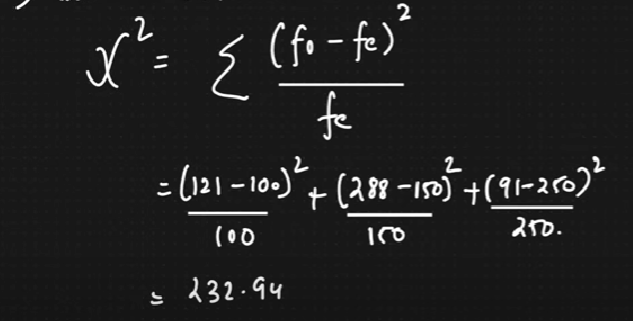 χ² = Σ (fo - fe)² / fe
= (121 - 100)² / 100 + (288 - 150)² / 150 + (91 - 250)² / 250.
= 232.94